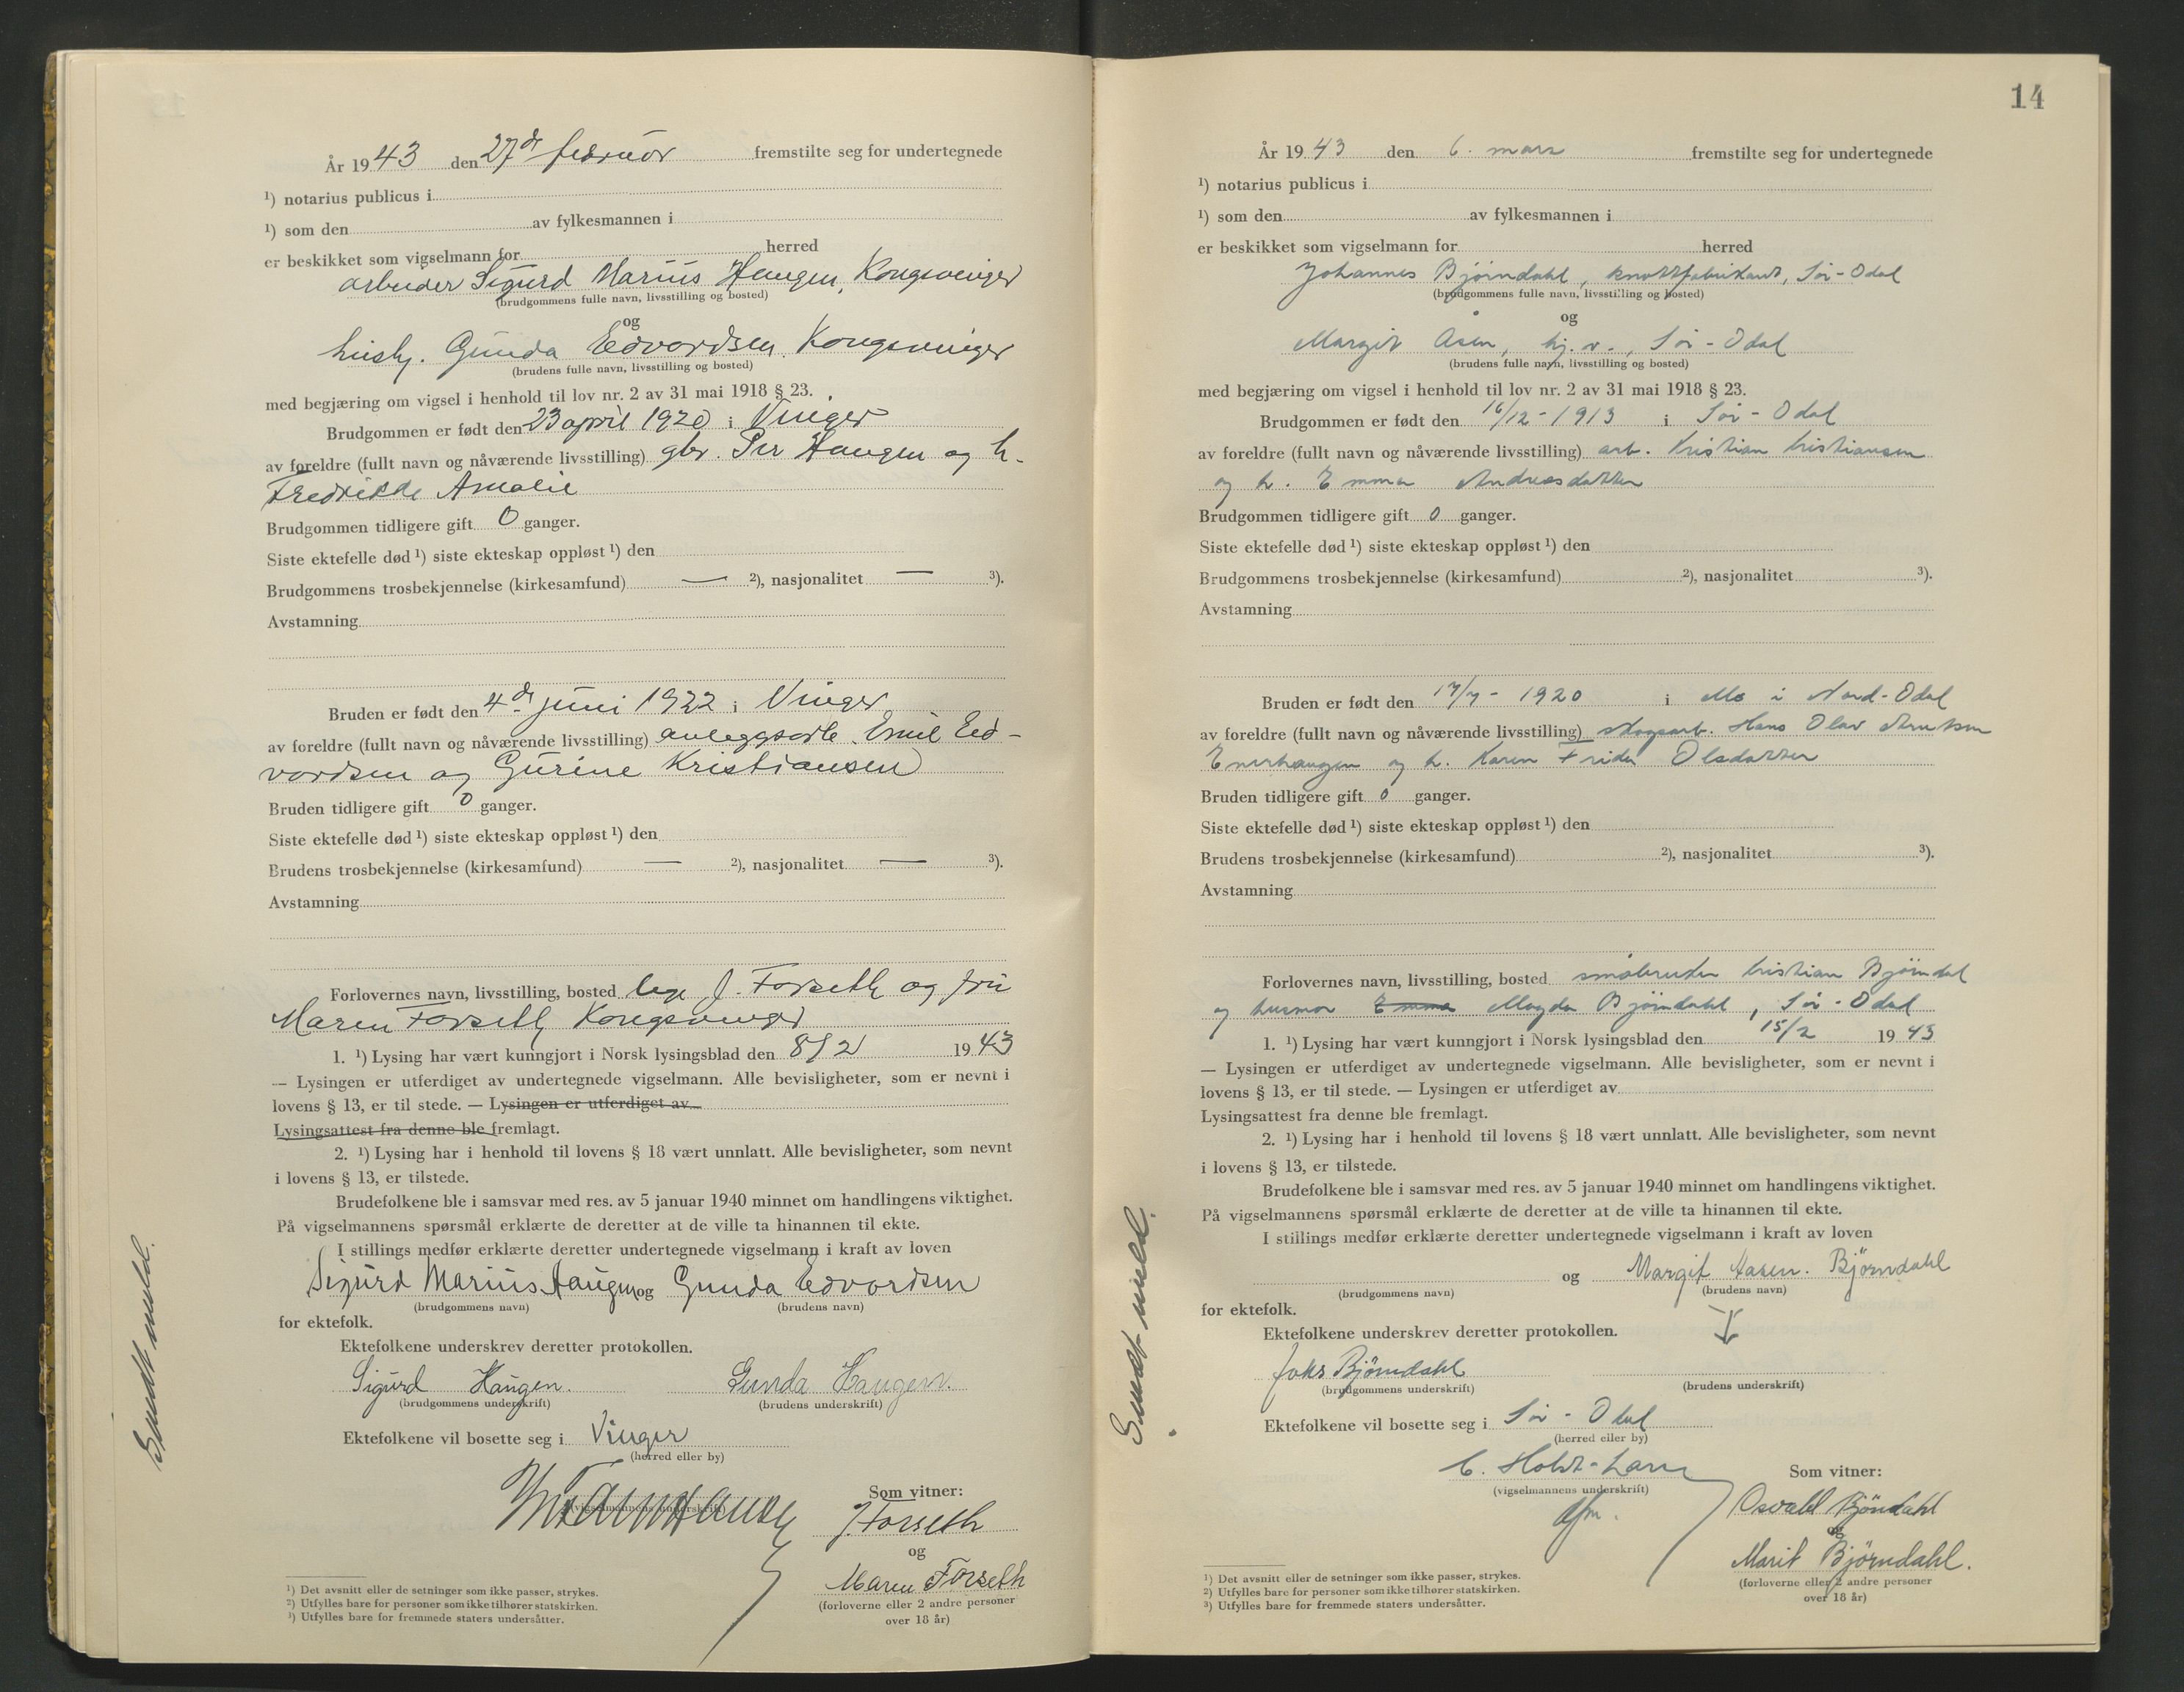 År 1943 den 27de februar fremstilte seg for undertegnede
¹) notarius publicus i
¹) som den av fylkesmannen i
er beskikket som vigselmann for herred
arbeider Sigurd Marius Haugen, Kongsvinger
(brudgommens fulle navn, livsstilling og bosted)
og
hushj. Gunda Edvardsen Kongsvinger
(brudens fulle navn, livsstilling og bosted)
med begjæring om vigsel i henhold til lov nr. 2 av 31 mai 1918 § 23.
Brudgommen er født den 23 april 1920 i Vinger
av foreldre (fullt navn og nåværende livsstilling) gbr. Per Haugen og h.
Fredrikke Amalie
Brudgommen tidligere gift 0 ganger.
Siste ektefelle død ¹) siste ekteskap oppløst ¹) den
Brudgommens trosbekjennelse (kirkesamfund) — ²), nasjonalitet — ³).
Avstamning
Bruden er født den 4de juni 1922 i Vinger
av foreldre (fullt navn og nåværende livsstilling) anleggsarb. Emil Ed-
vardsen og Gurine Kristiansen
Bruden tidligere gift 0 ganger.
Siste ektefelle død ¹) siste ekteskap oppløst ¹) den
Brudens trosbekjennelse (kirkesamfund) — ²), nasjonalitet — ³).
Avstamning
Forlovernes navn, livsstilling, bosted lege J. Forseth og fru
Maren Forseth Kongsvinger
1. ¹) Lysing har vært kunngjort i Norsk lysingsblad den 8/2 1943
— Lysingen er utferdiget av undertegnede vigselmann. Alle bevisligheter, som er nevnt i
lovens § 13, er til stede. — Lysingen er utferdiget av
Lysingsattest fra denne ble fremlagt.
2. ¹) Lysing har i henhold til lovens § 18 vært unnlatt. Alle bevisligheter, som nevnt
i lovens § 13, er tilstede.
Brudefolkene ble i samsvar med res. av 5 januar 1940 minnet om handlingens viktighet.
På vigselmannens spørsmål erklærte de deretter at de ville ta hinannen til ekte.
I stillings medfør erklærte deretter undertegnede vigselmann i kraft av loven
Sigurd Marius Haugen og Gunda Edvardsen
(brudgommens navn) (brudens navn)
for ektefolk.
Ektefolkene underskrev deretter protokollen.
Sigurd Haugen. Gunda Haugen.
(brudgommens underskrift) (brudens underskrift)
Ektefolkene vil bosette seg i Vinger
(herred eller by)
(vigselmannens underskrift)
Som vitner:
J Forseth
og
Maren Forseth
(forloverne eller 2 andre personer
over 18 år)
¹) Det avsnitt eller de setninger som ikke passer, strykes.
²) Utfylles bare for personer som ikke tilhører statskirken.
³) Utfylles bare for fremmede staters undersåtter.
Sendt meld.
14
År 1943 den 6. mars fremstilte seg for undertegnede
¹) notarius publicus i
¹) som den av fylkesmannen i
er beskikket som vigselmann for herred
Johannes Bjørndahl, knottfabrikant, Sør-Odal
(brudgommens fulle navn, livsstilling og bosted)
og
Margit Åsen, hj.v., Sør-Odal
(brudens fulle navn, livsstilling og bosted)
med begjæring om vigsel i henhold til lov nr. 2 av 31 mai 1918 § 23.
Brudgommen er født den 16/12-1913 i Sør-Odal
av foreldre (fullt navn og nåværende livsstilling) arb. Kristian Kristiansen
og h. Emma Andreasdatter
Brudgommen tidligere gift 0 ganger.
Siste ektefelle død ¹) siste ekteskap oppløst ¹) den
Brudgommens trosbekjennelse (kirkesamfund) ²), nasjonalitet ³).
Avstamning
Bruden er født den 17/7-1920 i Mo i Nord-Odal
av foreldre (fullt navn og nåværende livsstilling) skogsarb. Hans Olav Arntsen
Enerhaugen og h. Karen Frida Olsdatter
Bruden tidligere gift 0 ganger.
Siste ektefelle død ¹) siste ekteskap oppløst ¹) den
Brudens trosbekjennelse (kirkesamfund) ²), nasjonalitet ³).
Avstamning
Forlovernes navn, livsstilling, bosted småbruker Kristian Bjørndal
og husmor Emma Magda Bjørndahl, Sør-Odal
1. ¹) Lysing har vært kunngjort i Norsk lysingsblad den 15/2 1943
— Lysingen er utferdiget av undertegnede vigselmann. Alle bevisligheter, som er nevnt i
lovens § 13, er til stede. — Lysingen er utferdiget av
Lysingsattest fra denne ble fremlagt.
2. ¹) Lysing har i henhold til lovens § 18 vært unnlatt. Alle bevisligheter, som nevnt
i lovens § 13, er tilstede.
Brudefolkene ble i samsvar med res. av 5 januar 1940 minnet om handlingens viktighet.
På vigselmannens spørsmål erklærte de deretter at de ville ta hinannen til ekte.
I stillings medfør erklærte deretter undertegnede vigselmann i kraft av loven
og Margit Aasen. Bjørndahl
(brudgommens navn) (brudens navn)
for ektefolk.
Ektefolkene underskrev deretter protokollen.
Johs Bjørndahl
(brudgommens underskrift) (brudens underskrift)
Ektefolkene vil bosette seg i Sør-Odal
(herred eller by)
C. Holst-Larsen
(vigselmannens underskrift)
Som vitner:
Osvald Bjøndahl
og
Marit Bjørndahl.
(forloverne eller 2 andre personer
over 18 år)
¹) Det avsnitt eller de setninger som ikke passer, strykes.
²) Utfylles bare for personer som ikke tilhører statskirken.
³) Utfylles bare for fremmede staters undersåtter.
Sendt meld.